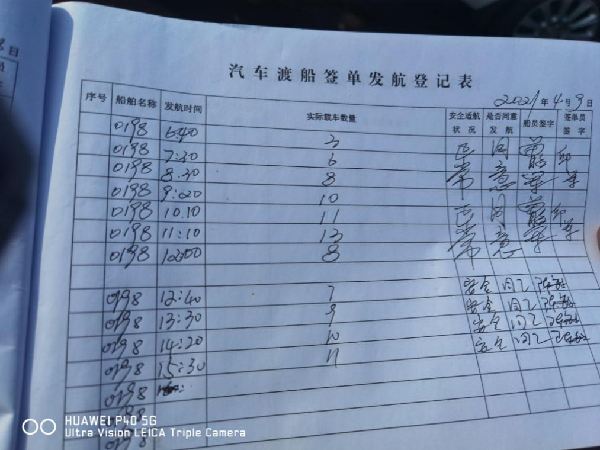 汽车渡船签单发航登记表
2021年4月9日
序号 船舶名称 发航时间 实际载车数量 安全适航状况 是否同意发航 船员签字 签单员签字
0198 6:40 3 正 同
0198 7:30 6 常 意
0198 8:30 8
0198 9:20 10
0198 10:10 11 正 同
0198 11:10 13 常 意
0198 12:00 8
0198 12:40 7 安全
0198 13:30 9 安全
0198 14:20 10 安全
0198 15:30 11 安全
0198
0198
日
HUAWEI P40 5G
Ultra Vision LEICA Triple Camera